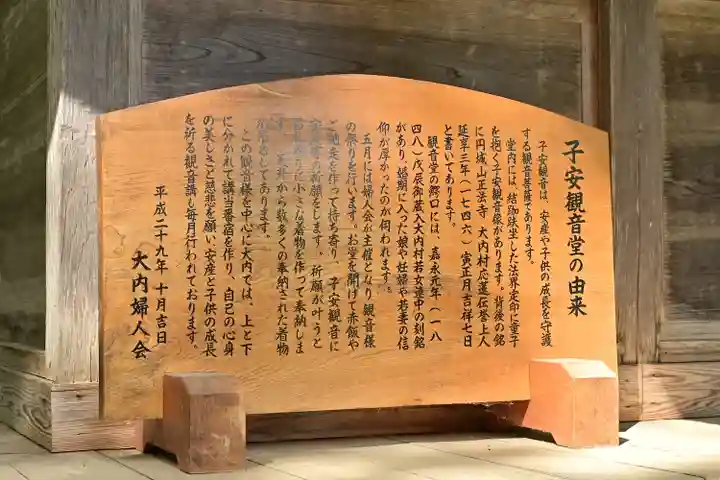 子安観音堂の由来
子安観音は、安産や子供の成長を守護
する観音菩薩であります。
堂内には、結跏趺坐した法界定印に童子
を抱く子安観音像があります。背後の銘
に円城山正法寺 大内村応運伝誉上人
延享三年(一七四六)寅正月吉祥七日
と書いてあります。
観音堂の鰐口には、嘉永元年(一八
四八)戊辰御蔵入大内村若女連中の刻銘
があり、婚期に入った娘や妊婦や若妻の信
仰が厚かったのが伺われます。
五月には婦人会が主催となり観音様
の祭りを行います。お堂を開けて赤飯や
ご馳走を作って持ち寄り、子安観音に
の祈願をします。祈願が叶うと
に小さな着物を作って奉納しま
から数多くの奉納された着物
してあります。
この観音様を中心に大内では、上と下
に分かれて講当番宿を作り、自己の心身
の美しさと慈悲を願い、安産と子供の成長
を祈る観音講も毎月行われております。
平成二十九年 十月吉日
大内婦人会